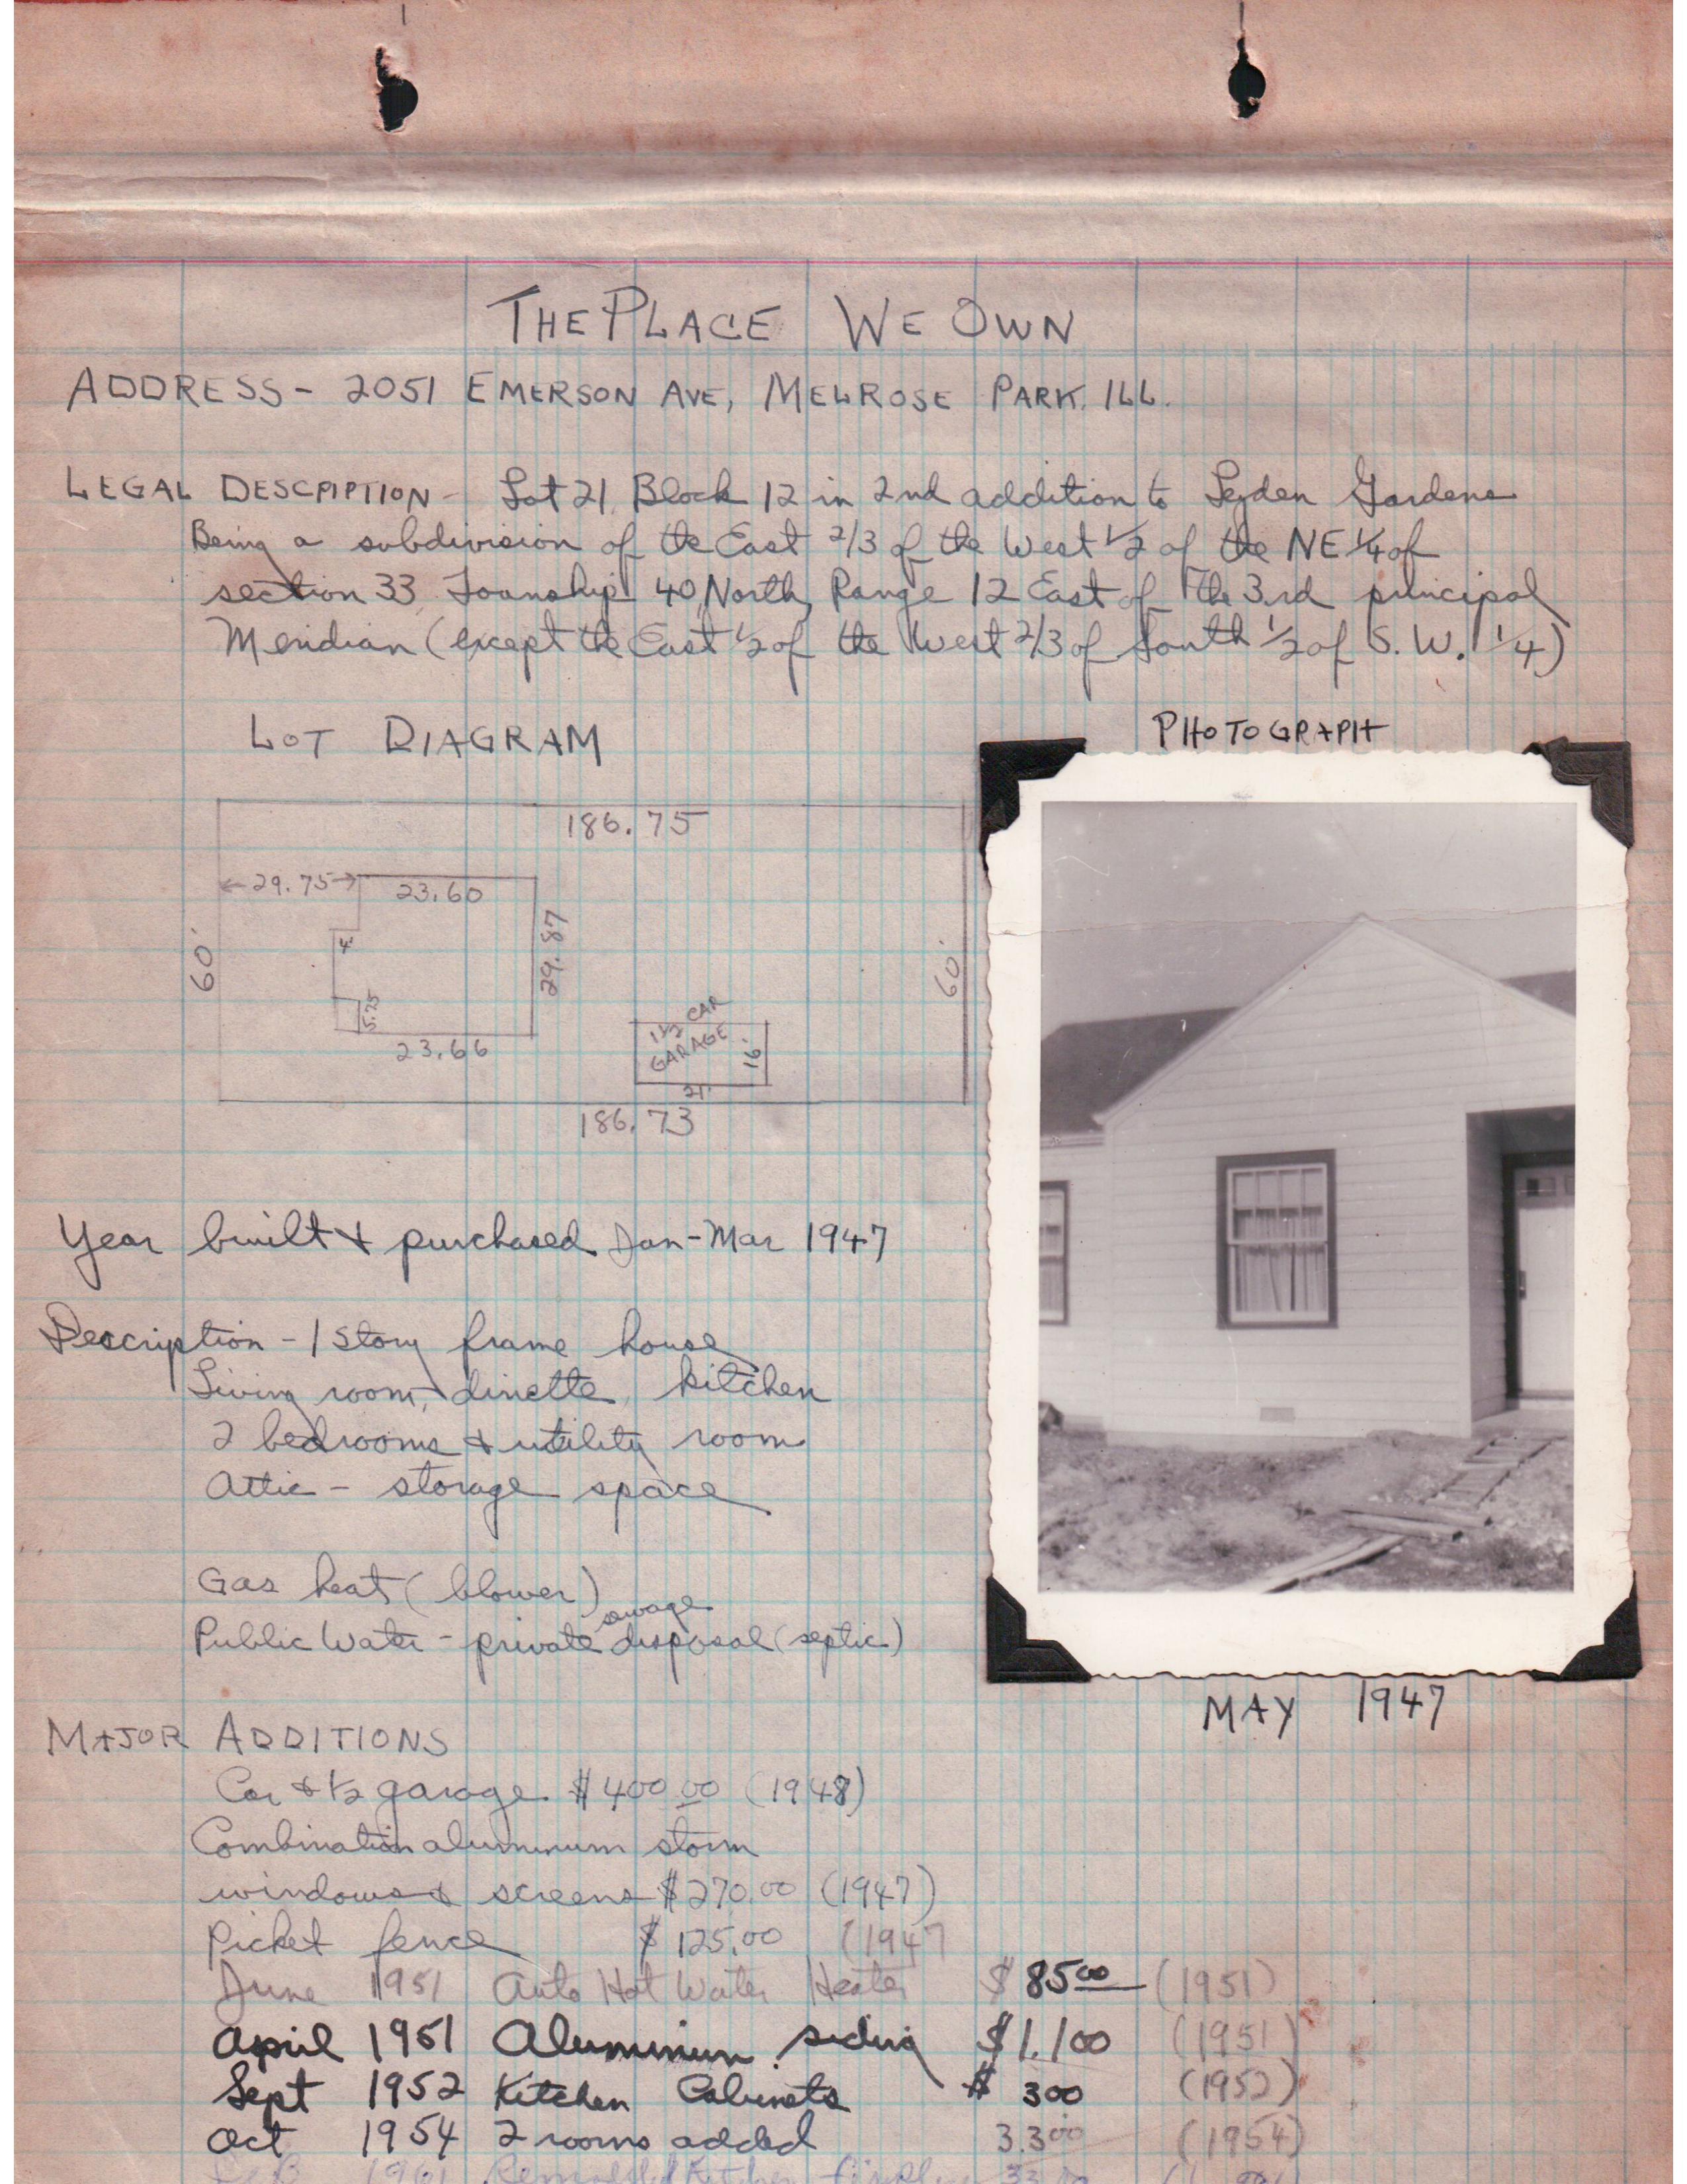 THE PLACE WE OWN
ADDRESS - 2051 EMERSON AVE, MELROSE PARK. ILL.
LEGAL DESCRIPTION - Lot 21, Block 12 in 2nd addition to Leyden Gardens
Being a subdivision of the East 2/3 of the West 1/2 of the NE 1/4 of
section 33, Township 40 North, Range 12 East of the 3rd principal
Meridian (except the East 1/2 of the West 2/3 of South 1/2 of S. W. 1/4)
LOT DIAGRAM
PHOTOGRAPH
186.75
←29.75→
23.60
60'
4'
29.87
60'
5.75
23.66
1 1/2 CAR
GARAGE
16'
21'
186.73
Year built & purchased Jan-Mar 1947
Description - 1 Story frame house
Living room, dinette, kitchen
2 bedrooms & utility room
Attic - storage space
Gas heat (blower)
Public Water - private sewage disposal (septic)
MAY 1947
MAJOR ADDITIONS
Car & 1/2 garage $400.00 (1948)
Combination aluminum storm
windows & screens $270.00 (1947)
Picket fence $125.00 (1947
June 1951 Auto Hot Water Heater $85.00 (1951)
April 1951 Aluminum siding $1,100 (1951)
Sept 1952 Kitchen Cabinets $300 (1952)
Oct 1954 2 rooms added 3300 (1954)
1961 Remodeled Kitchen